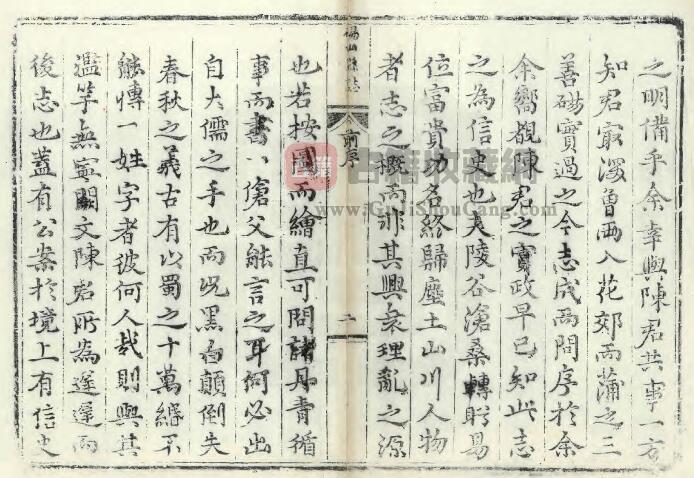 之明備乎余幸與陳君共事一方
知君最深曾兩入花郊而蒲之三
善碻實過之今志成而問序於余
余嚮覩陳君之實政早已知此志
之為信史也夫陵谷滄桑轉盻易
位富貴功名終歸塵土山川人物
者志之概而非其興衰理亂之源
山縣誌
前序
二
也若按圖而繪直可問諸丹青循
事而書一傖父能言之耳何必出
自大儒之手也而况黑白顛倒失
春秋之義古有以蜀之十萬緡不
能傳一姓字者彼何人哉則與其
濫竽無寧闕文陳君所為遲遲而
後志也蓋有公案於境上有信史
古籍收藏网
www.GuJiShouCang.com